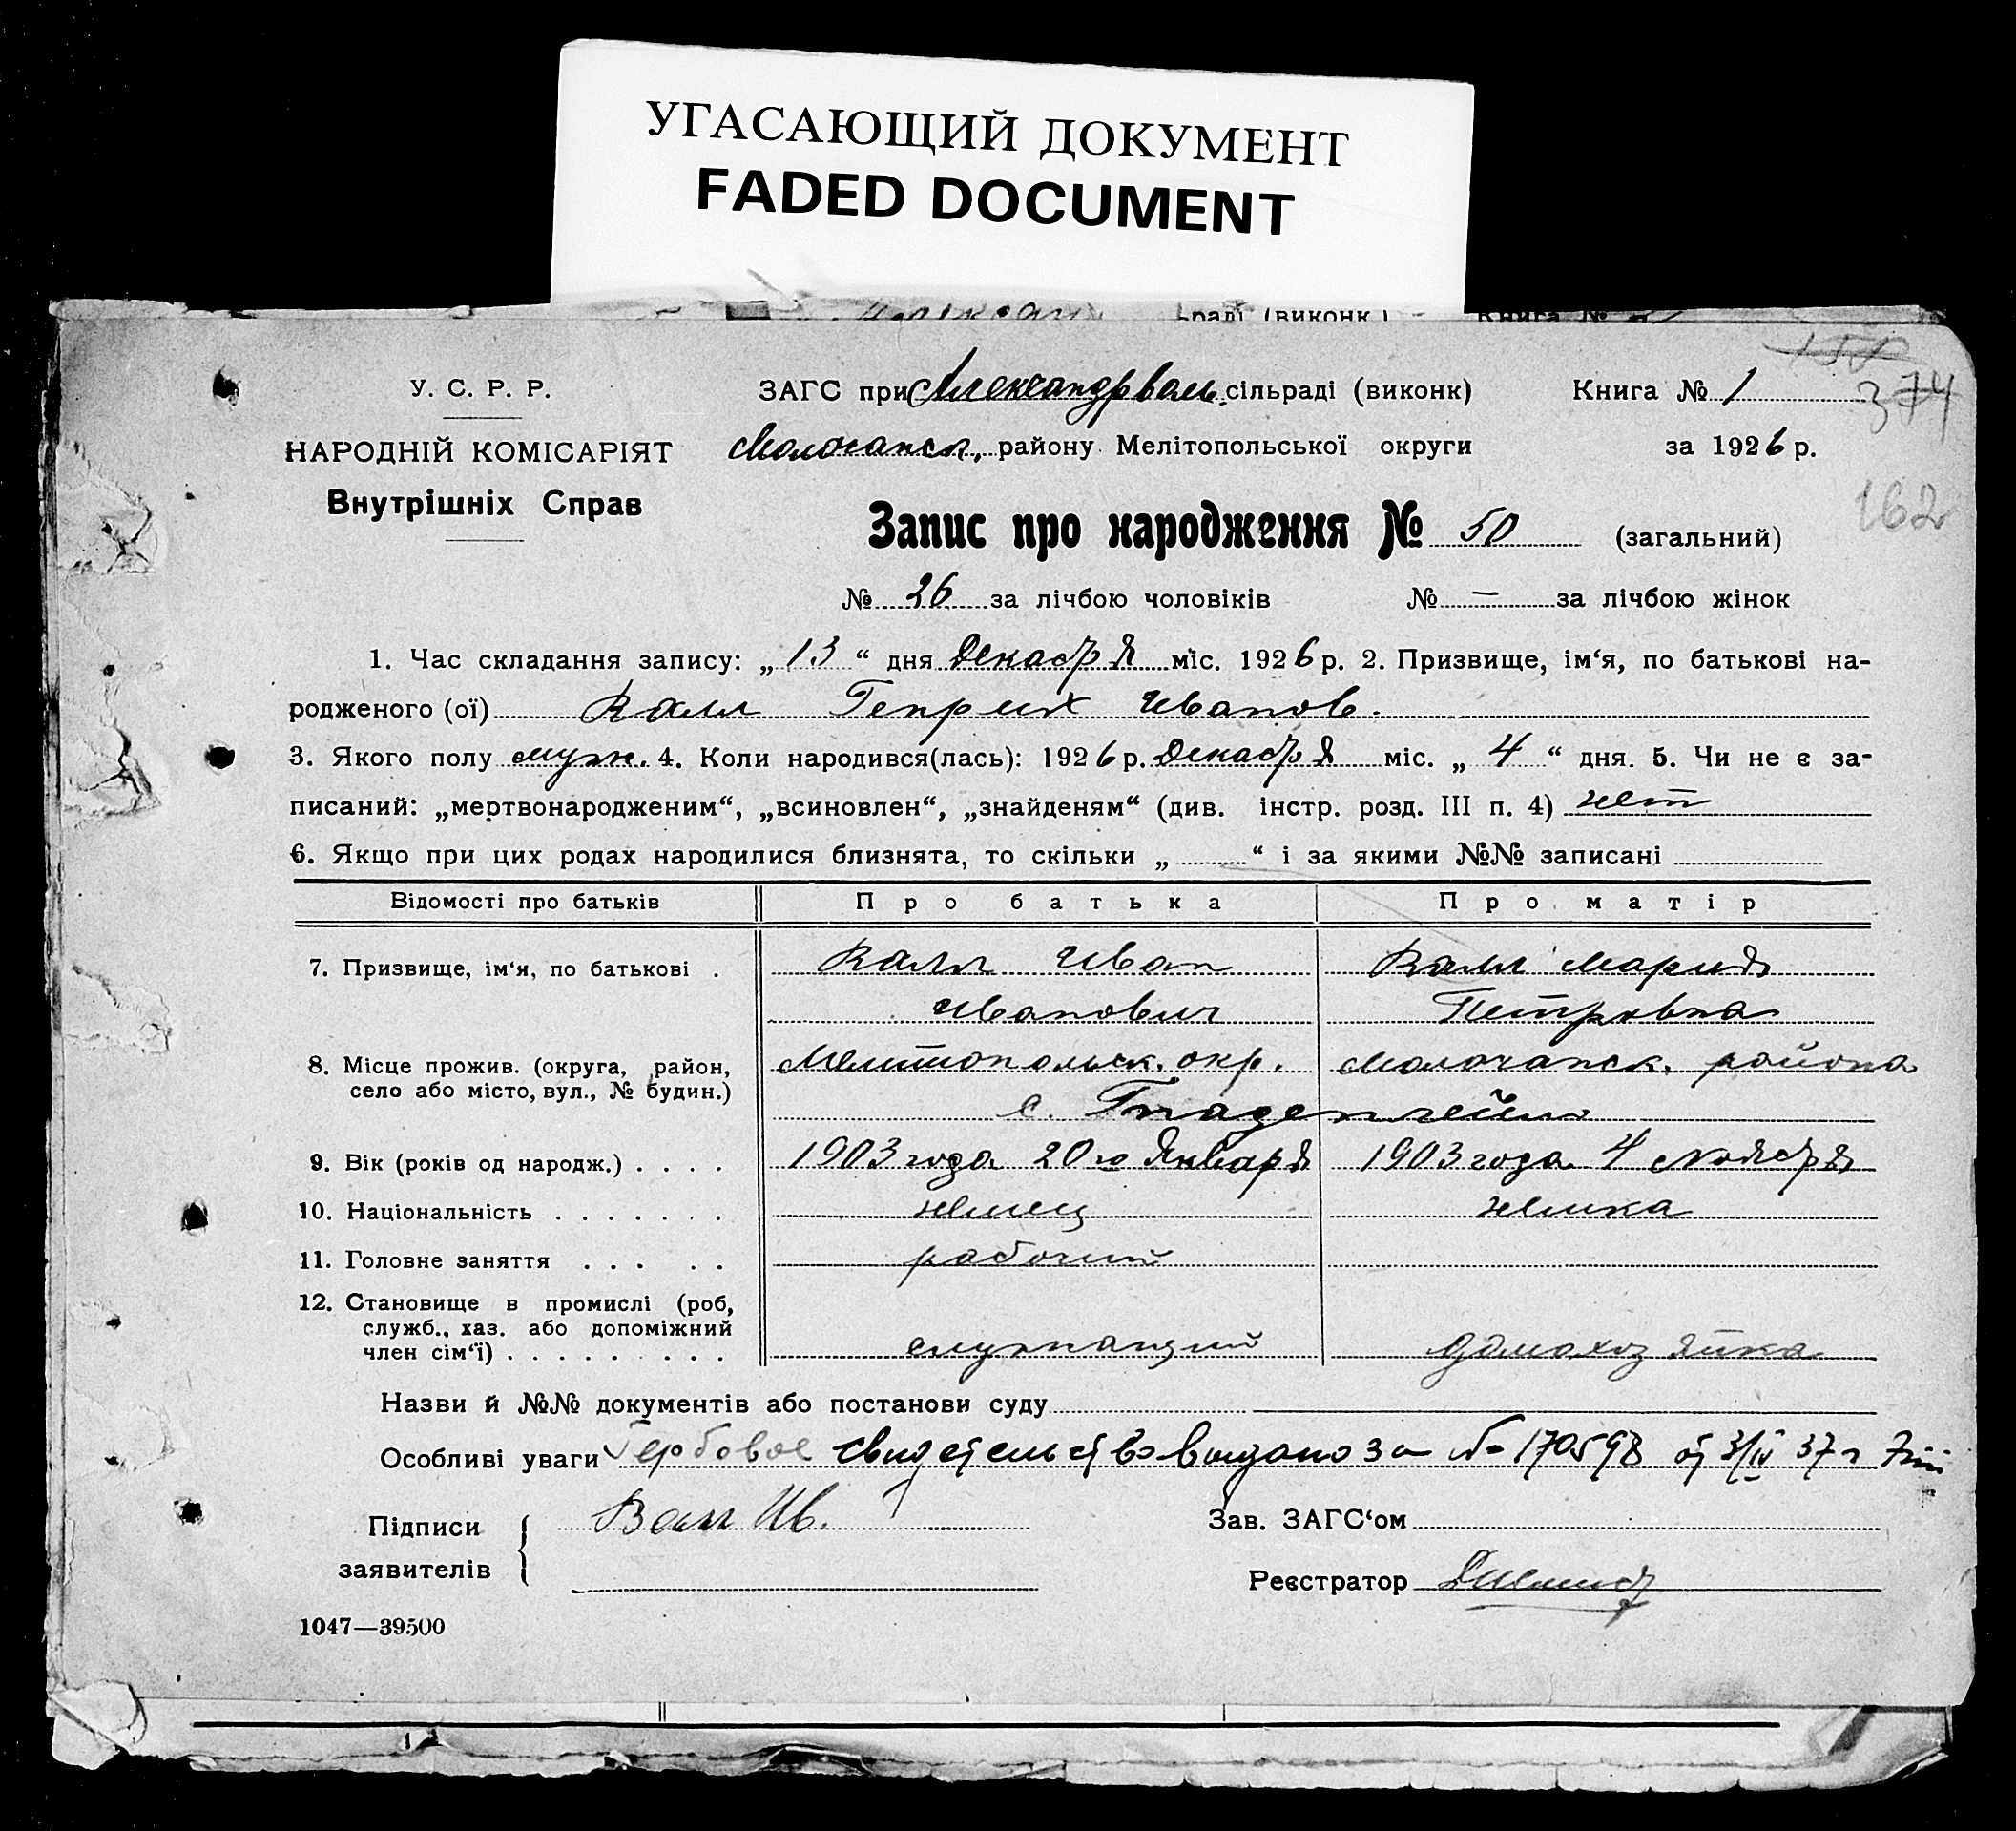 УГАСАЮЩИЙ ДОКУМЕНТ
FADED DOCUMENT
ьраді (виконк.) Книга №
У. С. Р. Р.
НАРОДНІЙ КОМІСАРІЯТ
Внутрішніх Справ
ЗАГС при Александрваль. сільраді (виконк) Книга № 1
374
Молочанск. району Мелітопольської округи за 1926 р.
162
Запис про народження № 50 (загальний)
№ 26 за лічбою чоловіків № — за лічбою жінок
1. Час складання запису: „13“ дня Декабря міс. 1926 р. 2. Призвище, ім‘я, по батькові на-
родженого (ої) Валл Генрих Иванов.
3. Якого полу муж. 4. Коли народився(лась): 1926 р. Декабря міс. „4“ дня. 5. Чи не є за-
писаний: „мертвонародженим“, „всиновлен“, „знайденям“ (див. інстр. розд. III п. 4) нет
6. Якщо при цих родах народилися близнята, то скільки „ “ і за якими №№ записані
Відомості про батьків Про батька Про матір
7. Призвище, ім‘я, по батькові . Валл Иван Валл Мария
Иванович Петровна
8. Місце прожив. (округа, район, Мелитопольск. окр. Молочанск. района
село або місто, вул., № будин.) с. Гнаденгейм
9. Вік (років од народж.) . . . . 1903 года 20го Января 1903 года 4 Ноября
10. Національність . . . . . . . немец немка
11. Головне заняття . . . . . рабочий
12. Становище в промислі (роб,
служб., хаз. або допоміжний
член сім‘ї) . . . . . . . . . служащий домахозяйка
Назви й №№ документів або постанови суду
Особливі уваги Гербовое свидетельство выдано за № 170598 от 3/IV 37 г
Підписи
заявителів
Валл Ив.
Зав. ЗАГС‘ом
Реєстратор
1047—39500